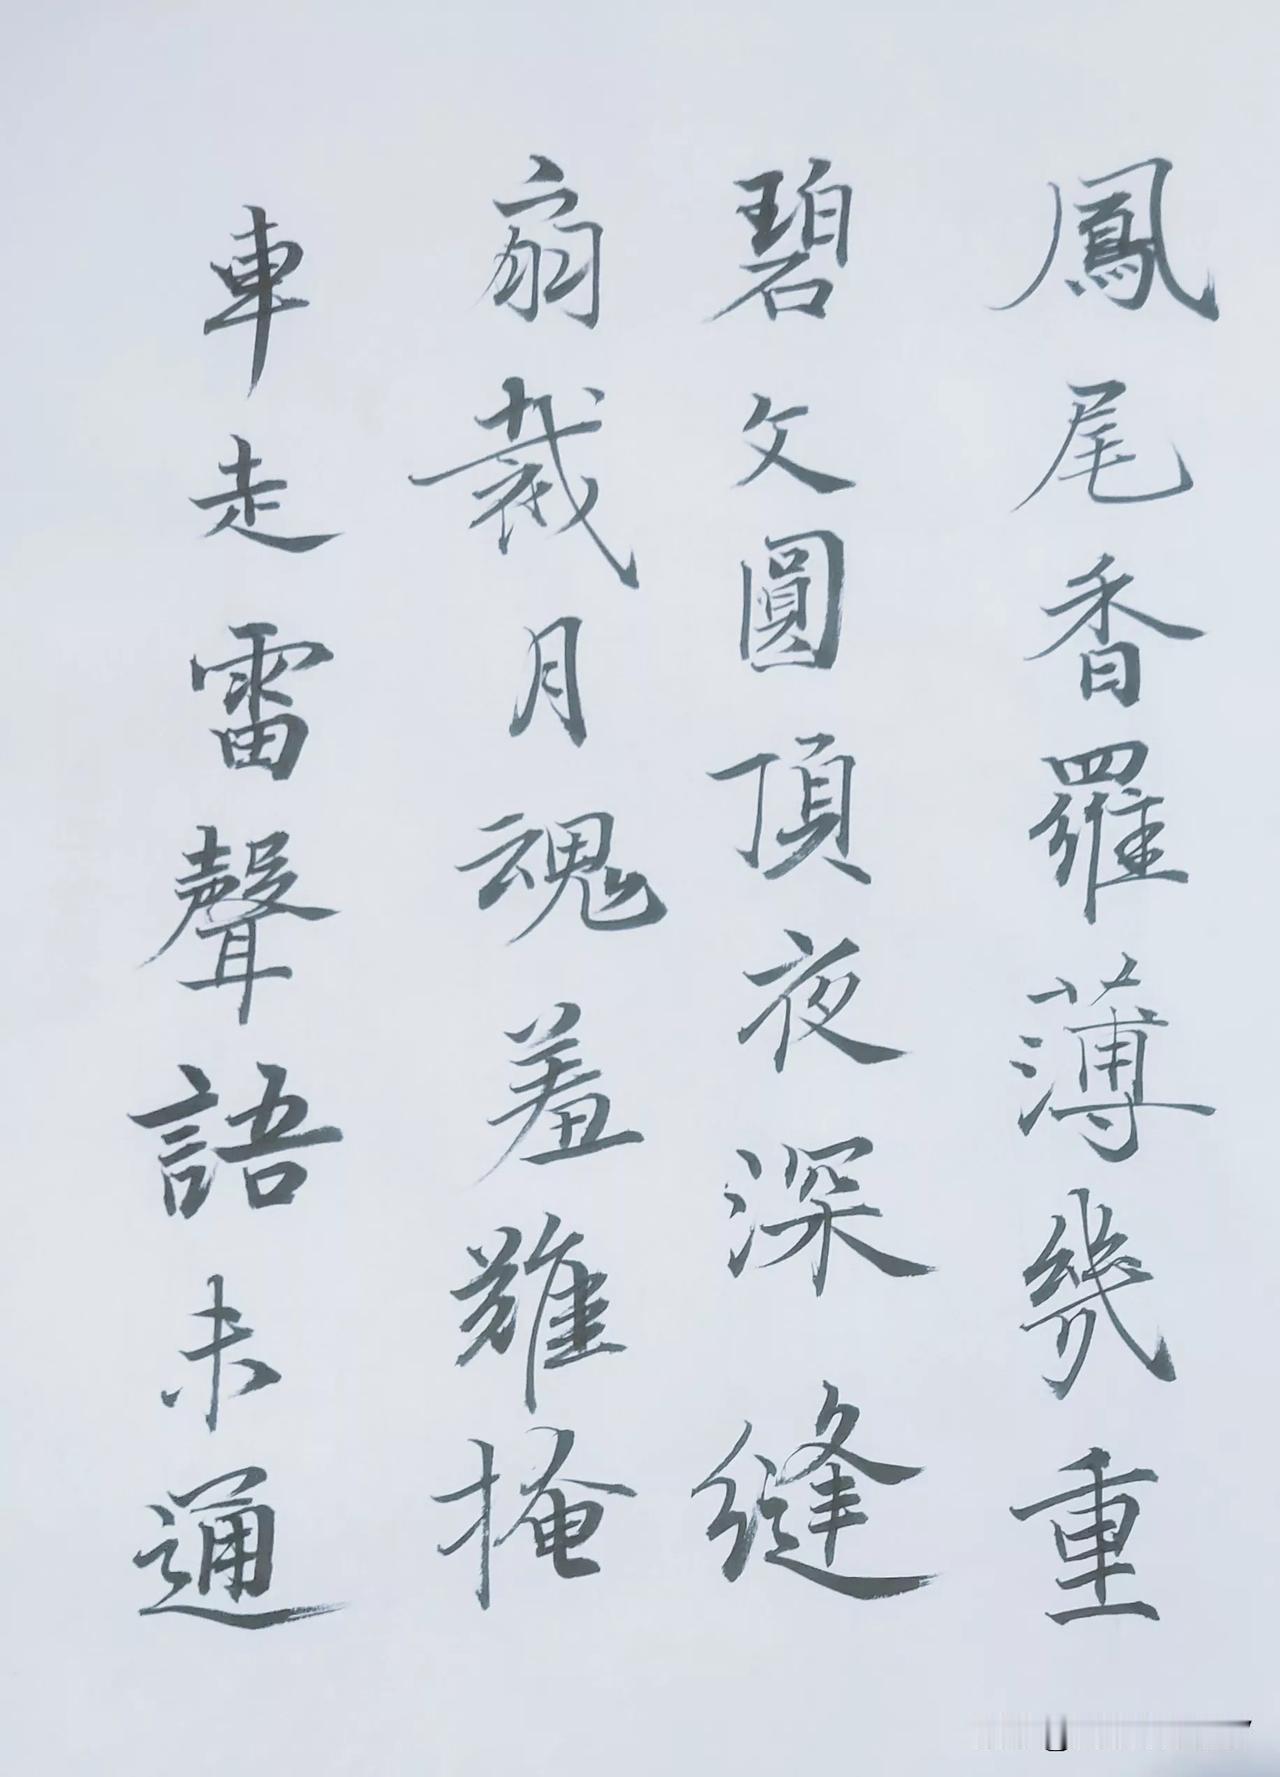 鳳尾香羅薄幾重
碧文圓頂夜深縫
扇裁月魂羞難掩
車走雷聲語未通